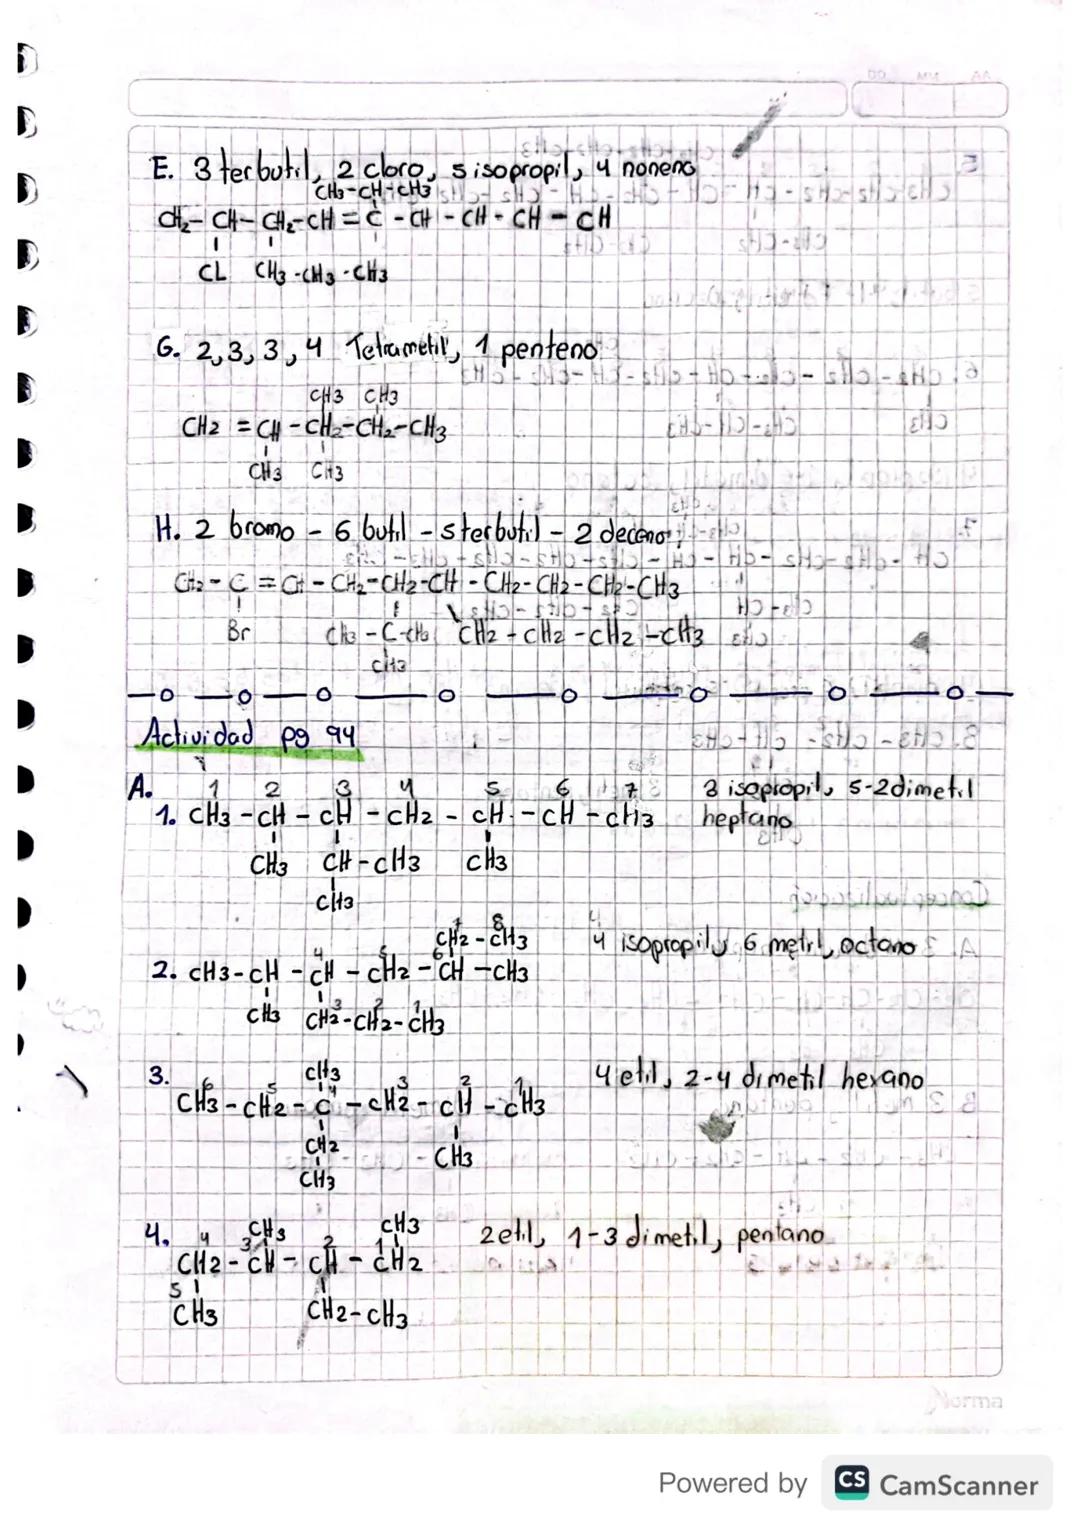 DD MM AA
E. 3 terbutil, 2 cloro, 5 isopropil, 4 noneno
CH3-CH-CH3
CH2-CH-CH2-CH=C-CH-CH-CH-CH
CL CH3-CH3-CH3
G. 2,3,3,4 Tetrametil, 1 penteno
CH3 CH3
CH2=CH-CH2-CH2-CH3
CH3 CH3
H. 2 bromo - 6 butil - 5 terbutil - 2 deceno
CH2-C=CH-CH2-CH2-CH-CH2-CH2-CH2-CH3
Br CH3-C-CH3 CH2-CH2-CH2-CH3
CH3
Actividad pg 94
A. 1 2 3 4 5 6 7 3 isopropil, 5-2dimetil
1. CH3-CH-CH-CH2-CH-CH-CH3 heptano
CH3 CH-CH3 CH3
CH3
7 8
CH2-CH3 4 isopropil, 6 metil, octano
4 5 6
2. CH3-CH-CH-CH2-CH-CH3
3 2 1
CH3 CH2-CH2-CH3
3. CH3 4 etil, 2-4 dimetil hexano
6 5 4 3 2 1
CH3-CH2-C-CH2-CH-CH3
CH2 CH3
CH3
4. CH3 CH3 2 etil, 1-3 dimetil, pentano
4 3 2 1
CH2-CH-CH-CH2
5
CH3 CH2-CH3
Norma
Powered by CS CamScanner